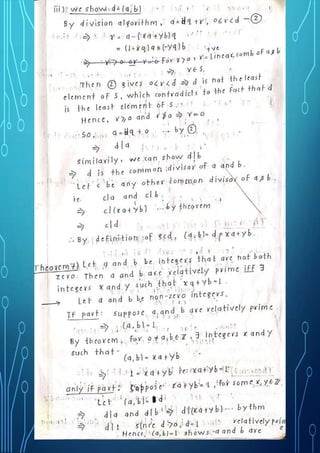 iii) : we show: d=(a,b)
By division algorithm, a=dq+r, 0≤r<d —②
⇒ r = a-(xa+yb)q
= (1-xq)a+(-yq)b
For r>0, r=Linear comb of a & b
⇒ r∈S.
Then ② gives 0<r<d ⇒ d is not the least
element of S, which contradicts to the fact that d
is the least element of S.
Hence, r≥0 and r≯0 ⇒ r=0
So, a=dq+0 ... by ②
⇒ d|a
similarily, we can show d|b
⇒ d is the common divisor of a and b.
Let c be any other common divisor of a & b,
ie. c|a and c|b.
⇒ c|(xa+yb) ...by theorem
⇒ c|d
∴ By definition of gcd, (a,b)=d=xa+yb.
Theorem 7) Let a and b be integers that are not both
zero. Then a and b are relatively prime iff ∃
integers x and y such that xa+yb=1.
→ Let a and b be non-zero integers.
IF part: suppose a and b are relatively prime
⇒ (a,b)=1
By theorem, for 0≠a,b∈Z, ∃ integers x and y
such that-
(a,b)=xa+yb
⇒ 1=xa+yb ie. xa+yb=1
only if part: suppose xa+yb=1, for some x,y∈Z.
Let (a,b)=d
⇒ d|a and d|b ⇒ d|(xa+yb)... by thm
⇒ d|1 since d>0, d=1
Hence, (a,b)=1 shows a and b are relatively prime